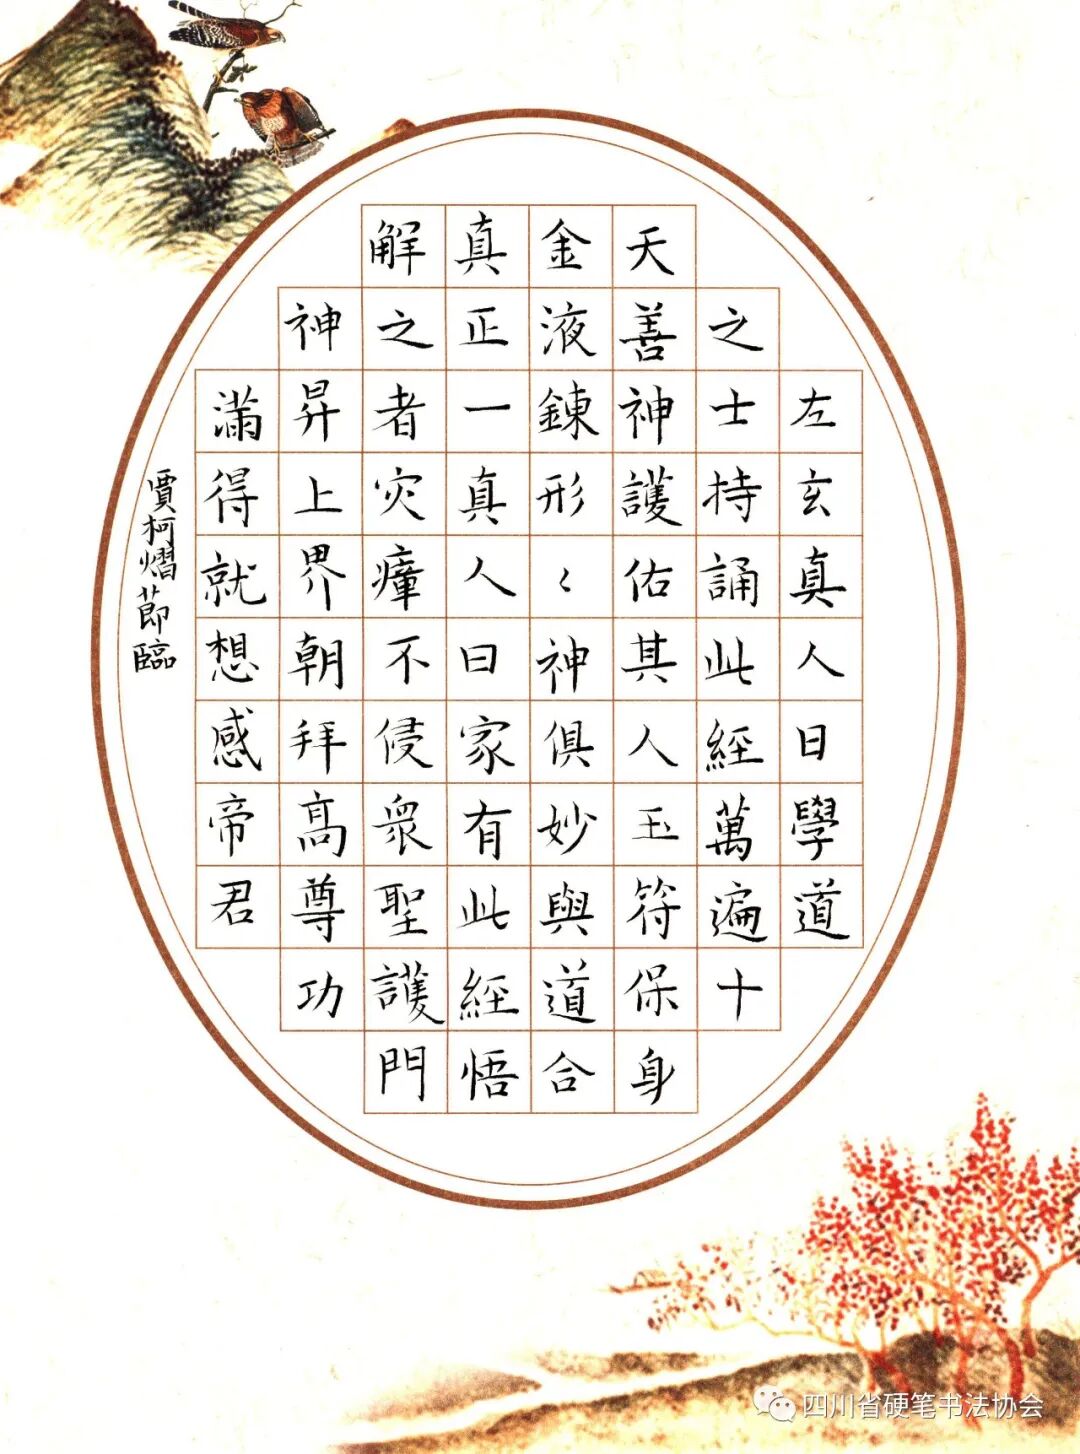 左玄真人曰學道
之士持誦此經萬遍十
天善神護佑其人玉符保身
金液鍊形〻神俱妙與道合
真正一真人曰家有此經悟
解之者灾瘴不侵衆聖護門
神昇上界朝拜高尊功
滿得就想感帝君
賈柯熠節臨
四川省硬笔书法协会